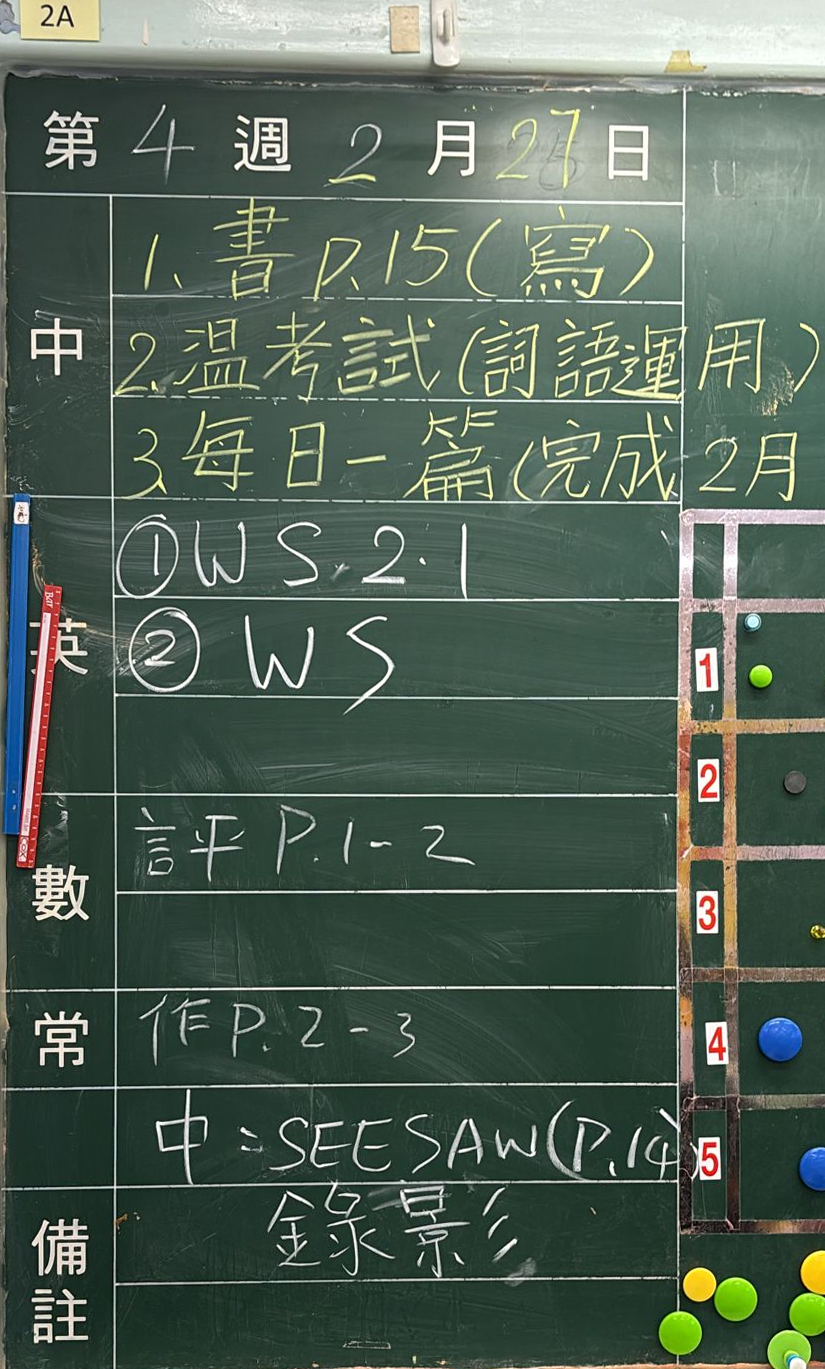 2A
第4週2月27日
中
1.書P.15(寫)
2.温考試(詞語運用)
3.每日一篇(完成2月
英
①WS.2.1
②WS
數
評P.1-2
常
作P.2-3
中:SEESAW(P.14)
備註
錄影
1
2
3
4
5